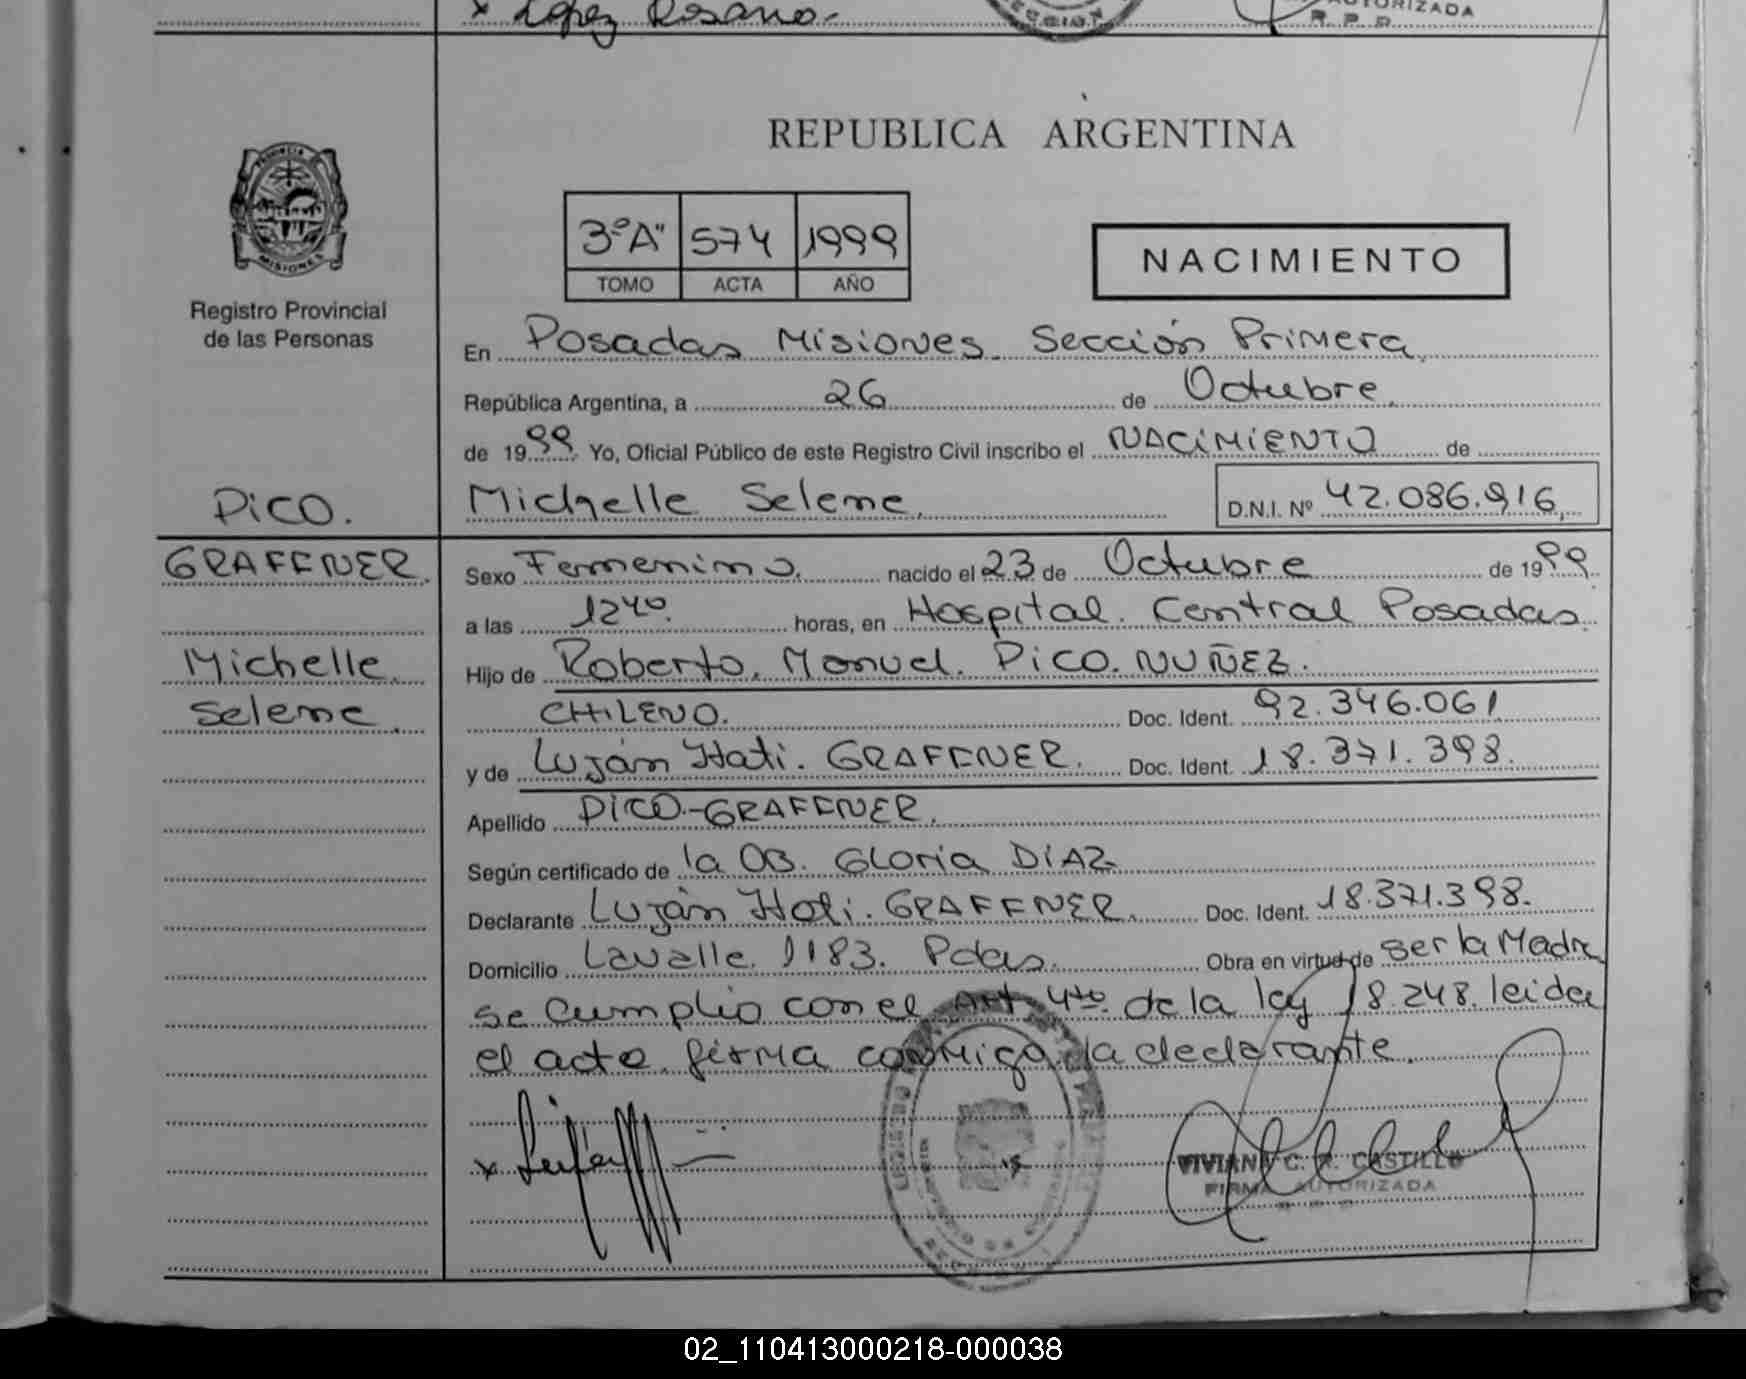 x López Rosario.
REPUBLICA ARGENTINA
PROVINCIA DE
MISIONES
Registro Provincial
de las Personas
3º"A" 574 1999
TOMO ACTA AÑO
NACIMIENTO
En Posadas Misiones Sección Primera
República Argentina, a 26 de Octubre
de 1999 Yo, Oficial Público de este Registro Civil inscribo el NACIMIENTO de
PICO. Michelle Selene D.N.I. Nº 42.086.916
GRAFFNER. Sexo Femenino. nacido el 23 de Octubre de 1999
a las 12 40 horas, en Hospital. Central Posadas.
Michelle Hijo de Roberto. Manuel. PICO. NUÑEZ.
Selene CHILENO. Doc. Ident. 92.346.061
y de Luján Itati. GRAFFNER. Doc. Ident. 18.371.398.
Apellido PICO-GRAFFNER.
Según certificado de la OB. Gloria DIAZ
Declarante Luján Itati. GRAFFNER. Doc. Ident. 18.371.398.
Domicilio Lavalle 1183. Pdas. Obra en virtud de ser la Madre
se cumplio con el Art. 4to. de la ley 18.248. leida
el acto firma conmigo la declarante.
VIVIANA C. R. CASTILLO
FIRMA AUTORIZADA
02_110413000218-000038